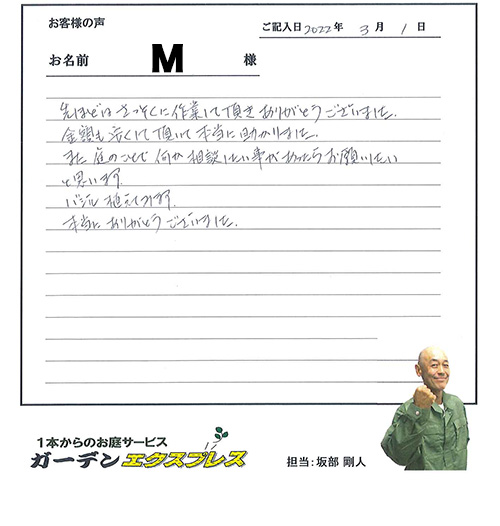 お客様の声
ご記入日 2022年 3月 1日
お名前 M 様
先ほどは さっそくに作業して頂き ありがとうございました.
金額も安くして頂いて 本当に助かりました.
また 庭のことで 何か相談したい事があったらお願いしたい
と思います.
バジル 植えてみます.
本当に ありがとうございました.
1本からのお庭サービス
ガーデン エクスプレス
担当:坂部 剛人